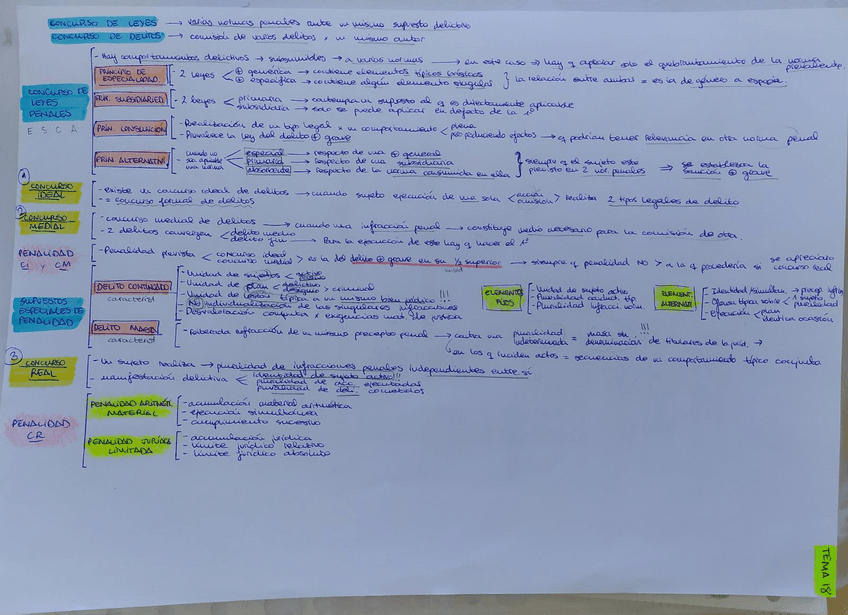 CONCURSO DE LEYES → varias normas penales ante un mismo supuesto delictivo
CONCURSO DE DELITOS → comisión de varios delitos x un mismo autor
CONCURSO DE LEYES PENALES
E S C A
- Hay comportamientos delictivos → subsumibles → a varias normas → en este caso → hay q apreciar solo el quebrantamiento de la norma
PRINCIPIO DE ESPECIALIDAD
2 leyes < ⊕ genérica → contiene elementos típicos básicos
⊕ específica → contiene algún elemento singular } la relación entre ambas = es la de género a especie
PRIN. SUBSIDARIED
- 2 leyes < primaria → contempla un supuesto al q es directamente aplicable
subsidiaria → solo se puede aplicar en defecto de la 1ª
PRIN. CONSUNCION
- Realización de un tipo legal x un comportamiento
- Prevalece la ley del delito ⊕ grave
→ q podrían tener relevancia en otra norma penal
PRIN. ALTERNATIV
cuando no sea aplicable una norma < especial → respecto de una ⊕ general
primaria → respecto de una subsidiaria
absorbente → respecto de la norma consumida en ella
} siempre q el sujeto este previsto en 2 nor. penales → se establezca la sanción ⊕ grave
1
CONCURSO IDEAL
- existe un concurso ideal de delitos → cuando sujeto ejecución de una sola < acción omisión > realiza 2 tipos legales de delito
- = concurso formal de delitos
2
CONCURSO MEDIAL
- concurso medial de delitos → cuando una infracción penal → constituye medio necesario para la comisión de otra
- 2 delitos convergen < delito medio
delito fin → Para la ejecución de este hay q hacer el 1º
PENALIDAD CI Y CM
- Penalidad prevista < concurso ideal concurso medial > es la del delito ⊕ grave en su ½ superior → siempre q penalidad NO > a la q procedería si se apreciara concurso real
SUPUESTOS ESPECIALES DE PENALIDAD
DELITO CONTINUADO
caracterist
- Unidad de sujetos < activo
- Unidad de plan < delictivo designio > criminal
- Unidad de lesión típica a un mismo bien jurídico !!!
- No individualización de las singulares infracciones
- Desvaloración conjunta x exigencias mat. de justicia
ELEMENTOS FIJOS
- Unidad de sujeto activo
- Pluralidad conduct. típ.
- Pluralidad infracci
ELEMENT. ALTERNAT
- Ofensa típica sobre < 1 sujeto pluralidad
- Ejecución < plan idéntica ocasión
DELITO MASA
caracterist
- Reiterada infracción de un mismo precepto penal → contra una pluralidad indeterminada = masa sin !!! denominación de titulares de b. jurid. →
→ en los q inciden actos = secuencias de un comportamiento típico conjunto
3
CONCURSO REAL
- Un sujeto realiza → pluralidad de infracciones penales independientes entre sí
- manifestación delictiva < identidad de sujeto activo!!!
pluralidad de acc. ejecutadas
pluralidad de deli. cometidos
PENALIDAD CR
PENALIDAD ARITMÉT MATERIAL
- acumulación material aritmética
- ejecución simultánea
- cumplimiento sucesivo
PENALIDAD JURÍDICA LIMITADA
- acumulación jurídica
- límite jurídico relativo
- límite jurídico absoluto
TEMA 18